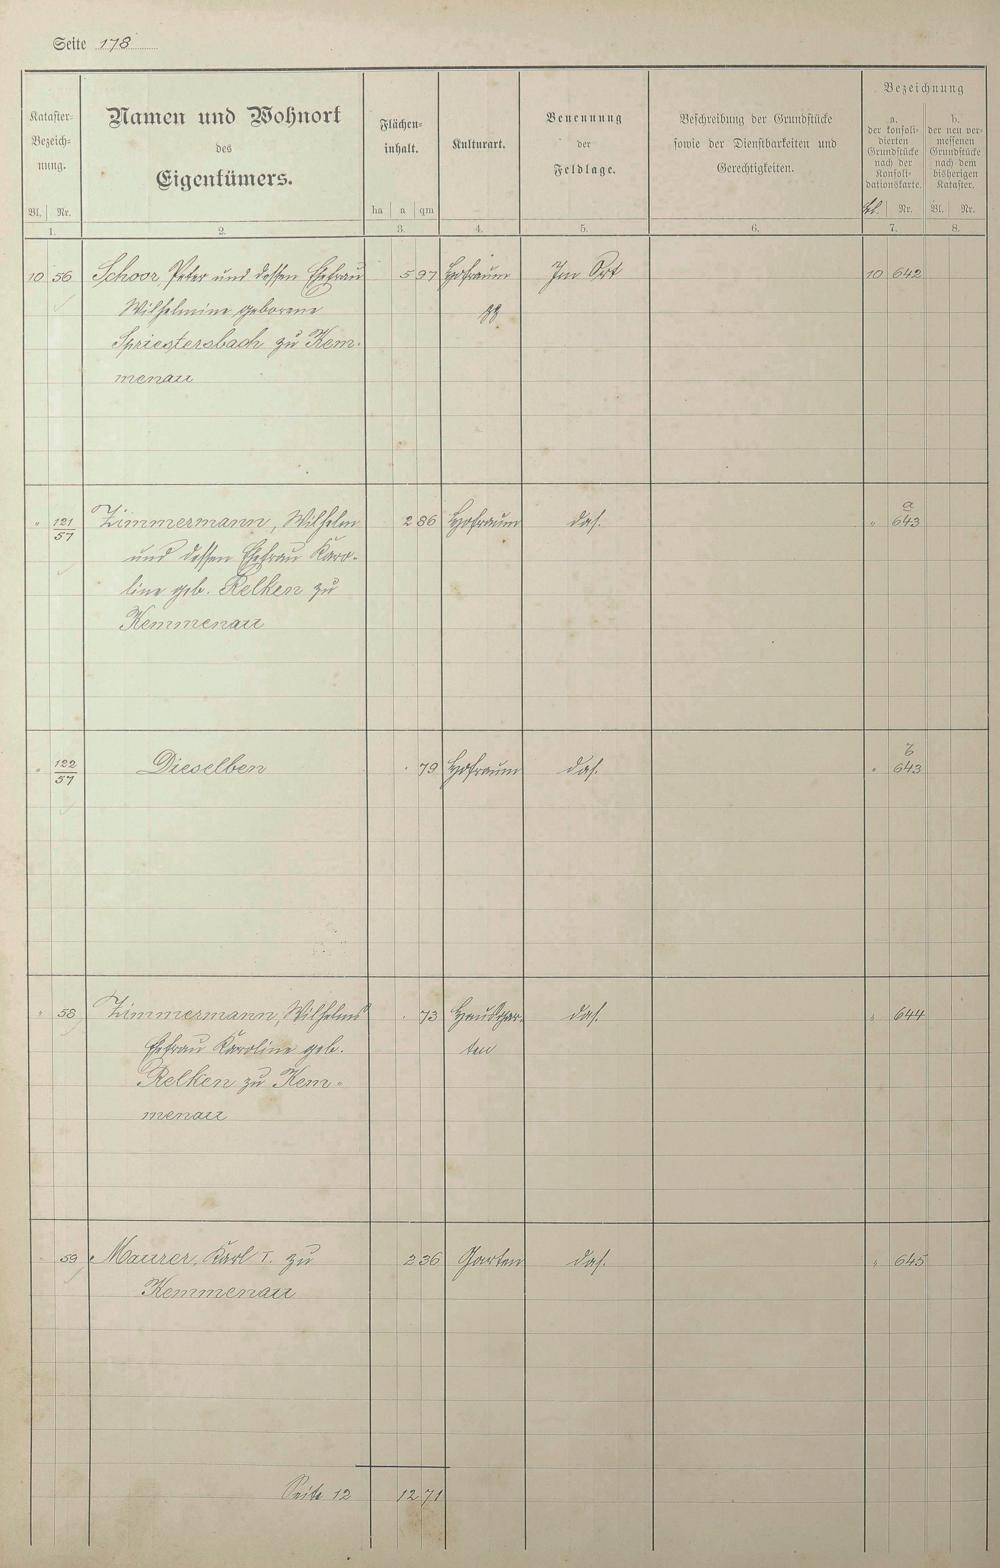 Seite 178
Kataster-
Bezeich-
nung.
Bl. Nr.
1.
Namen und Wohnort
des
Eigentümers.
2.
Flächen-
inhalt.
ha a qm
3.
Kulturart.
4.
Benennung
der
Feldlage.
5.
Beschreibung der Grundstücke
sowie der Dienstbarkeiten und
Gerechtigkeiten.
6.
Bezeichnung
a.
der konsoli-
dierten
Grundstücke
nach der
Konsoli-
dationskarte.
Bl. Nr.
7.
b.
der neu ver-
messenen
Grundstücke
nach dem
bisherigen
Kataster.
Bl. Nr.
8.
10 56 Schoor, Peter und dessen Ehefrau 5 97 Hofraum Im Ort 10 642
Wilhelmine geborene
Spriestersbach zu Kem-
menau
" 121/57 Zimmermann, Wilhelm 2 86 Hofraum das. " a/643
und dessen Ehefrau Karo-
line geb. Relken zu
Kemmenau
" 122/57 Dieselben . 79 Hofraum das. " b/643
" 58 Zimmermann, Wilhelms . 73 Hausgar- das. " 644
Ehefrau Karoline geb. ten
Relken zu Kem-
menau
59 Maurer, Karl I. zu 2 36 Garten das. " 645
Kemmenau
Seite 12 12 71